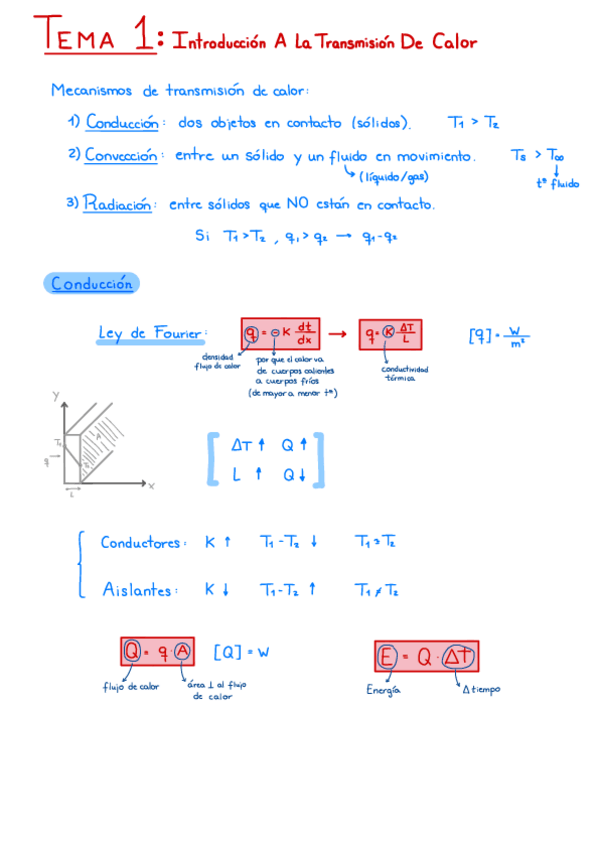 TEMA 1: Introducción A La Transmisión De Calor
Mecanismos de transmisión de calor:
1) Conducción: dos objetos en contacto (sólidos). T₁ > T₂
2) Convección: entre un sólido y un fluido en movimiento. Ts > T∞
(líquido/gas)
tª fluido
3) Radiación: entre sólidos que NO están en contacto.
Si T₁ > T₂ , q₁ > q₂ → q₁-q₂
Conducción
Ley de Fourier: q = - K dt/dx → q = K ΔT/L [q] = W/m²
densidad flujo de calor
por que el calor va
de cuerpos calientes
a cuerpos fríos
(de mayor a menor tª)
conductividad
térmica
y
T₁
L
x
ΔT ↑ Q ↑
L ↑ Q ↓
Conductores: K ↑ T₁-T₂ ↓ T₁ = T₂
Aislantes: K ↓ T₁-T₂ ↑ T₁ ≠ T₂
Q = q · A [Q] = W E = Q · ΔT
flujo de calor
área ⊥ al flujo
de calor
Energía
Δ tiempo